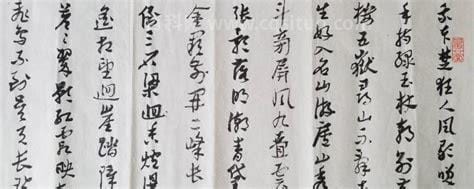 我本楚狂人凤歌咲
手持绿玉杖朝别
楼五嶽寻山不辞
生好入名山游庐山秀
斗旁屏风九叠云
张影落明湖青黛
金阙前开二峰长
倒三石梁迴香炉瀑
遥相望迴崖沓
苍苍翠影红霞映
飞鸟不到吴天长